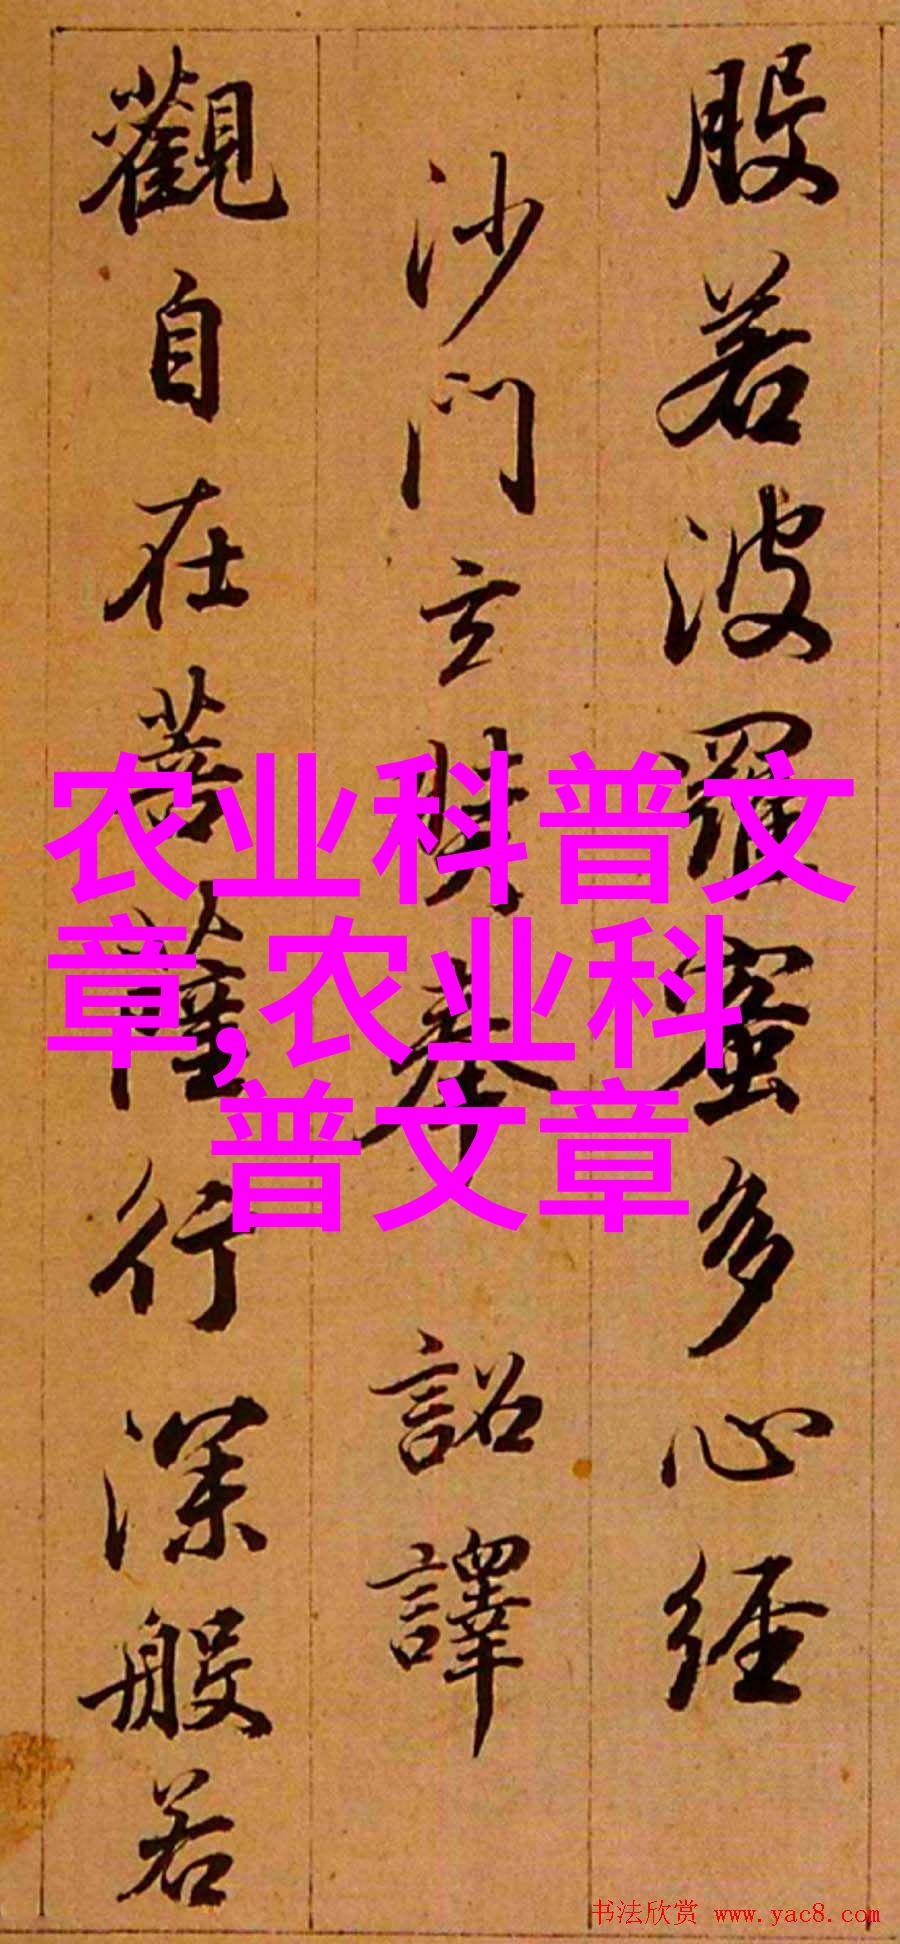 般若波羅蜜多心経
沙門玄奘奉 詔譯
觀自在菩薩行深般若
农业科普文
章,农业科
普文章
书法欣赏 www.yac8.com